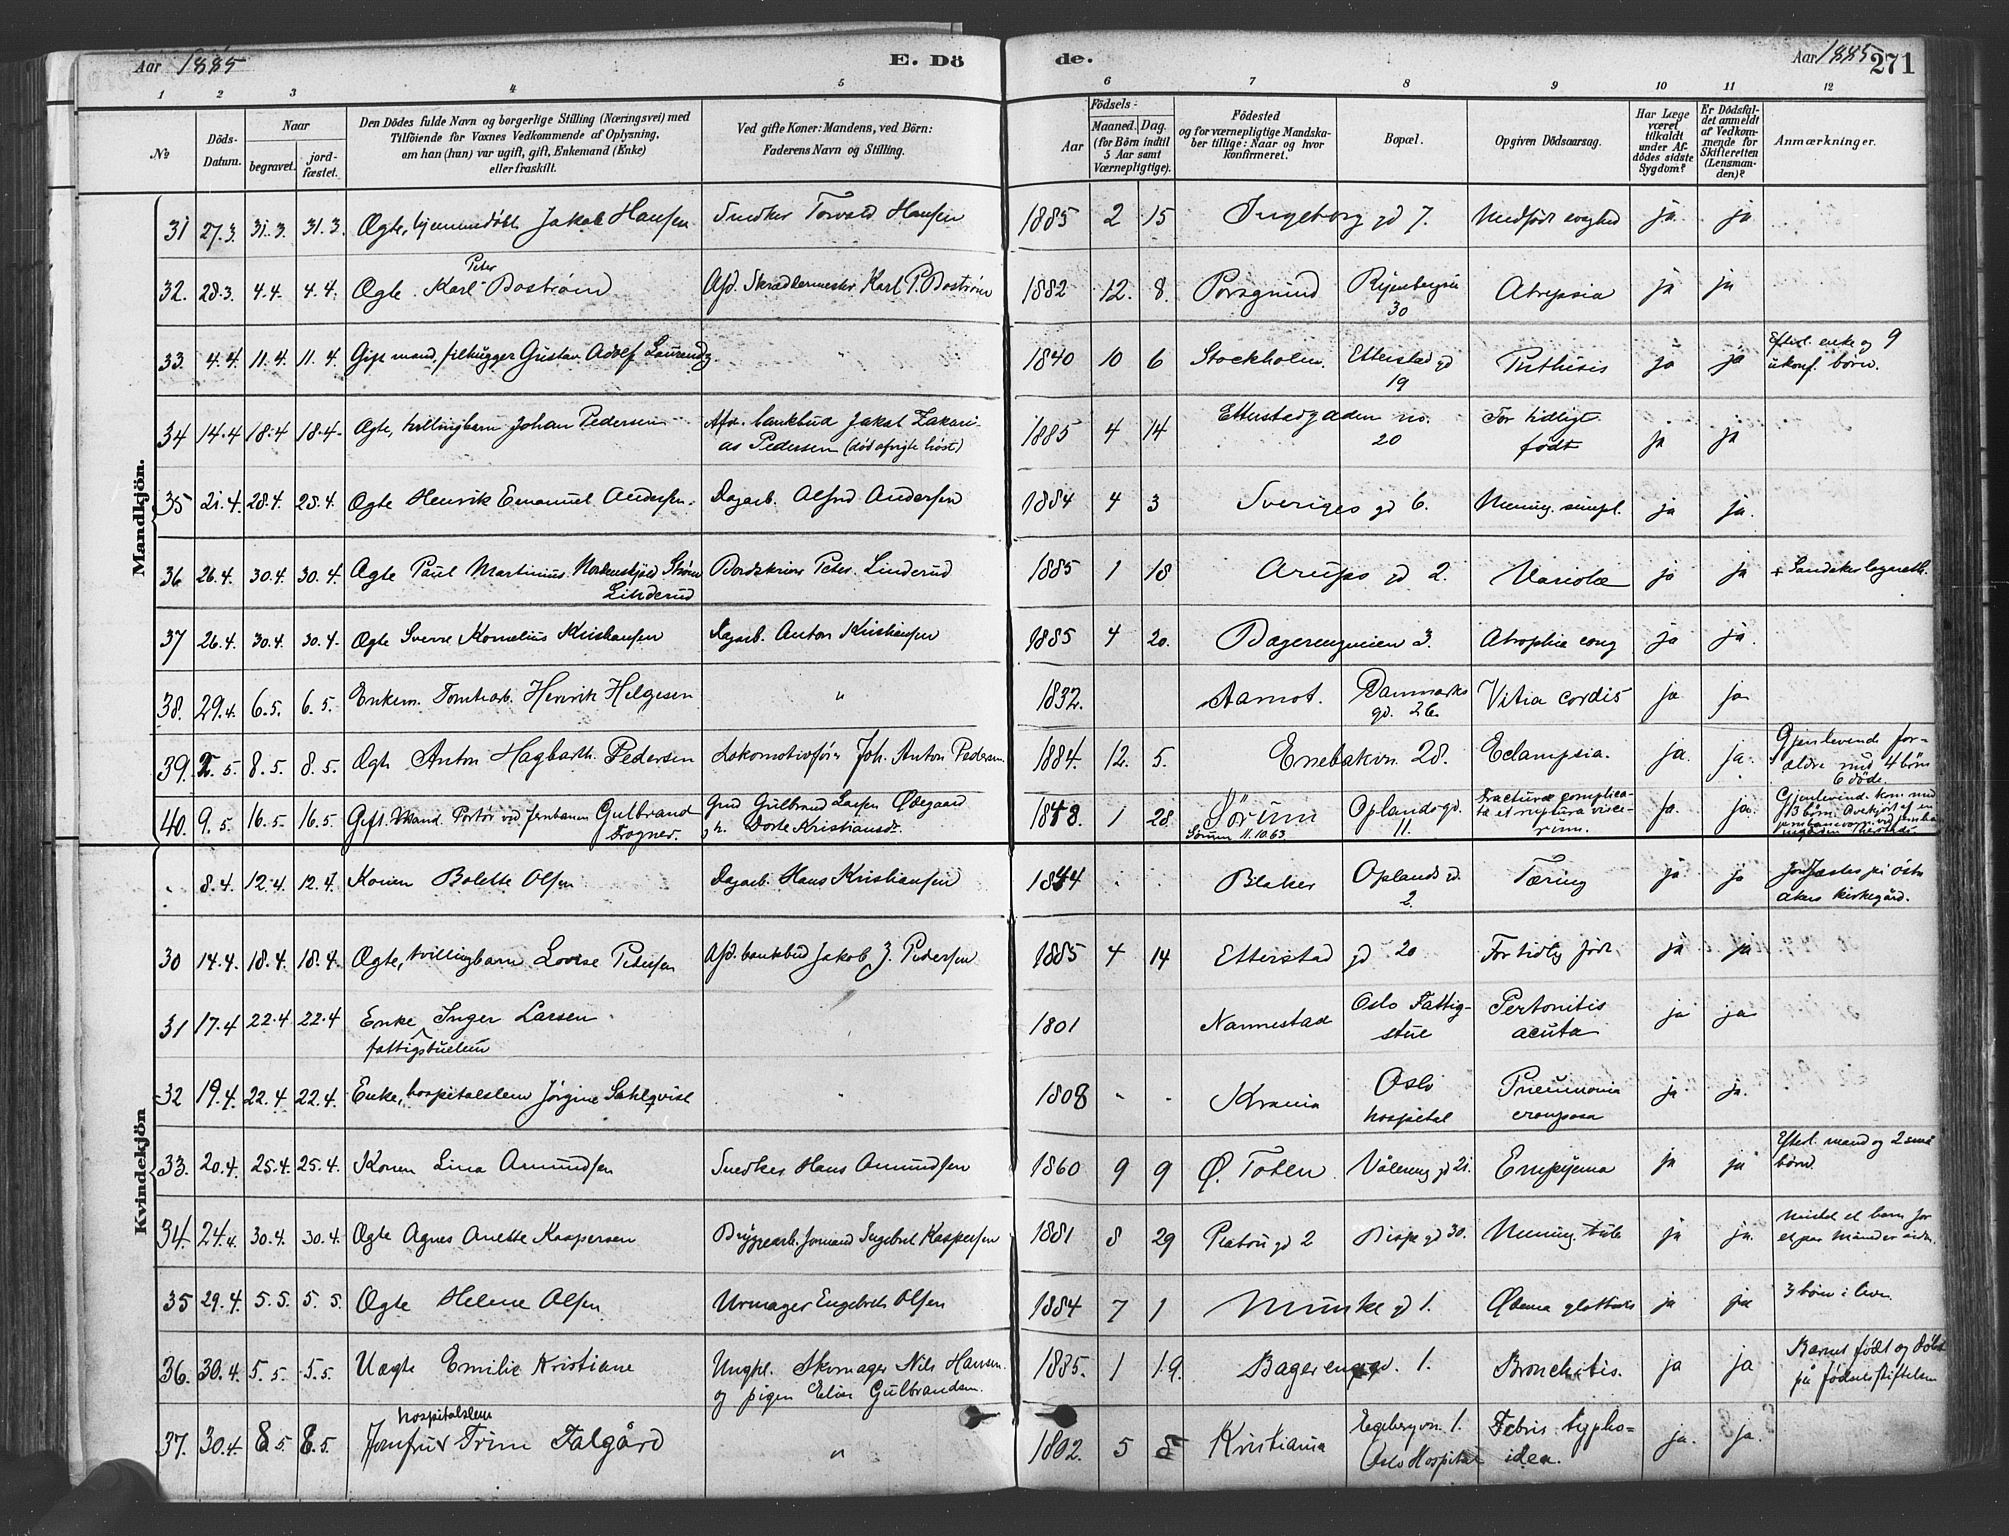 Aar 1885 E. Dö de. Aar 1885 271
1 2 3 4 5 6 7 8 9 10 11 12
№
Döds-
Datum.
Naar
begravet.
jord-
fæstet.
Den Dödes fulde Navn og borgerlige Stilling (Næringsvei) med
Tilföiende for Voxnes Vedkommende af Oplysning,
om han (hun) var ugift, gift, Enkemand (Enke)
eller fraskilt.
Ved gifte Koner: Mandens, ved Börn:
Faderens Navn og Stilling.
Födsels-
Aar
Maaned. Dag.
(for Börn indtil
5 Aar samt
Værnepligtige).
Födested
og for værnepligtige Mandska-
ber tillige: Naar og hvor
konfirmeret.
Bopæl.
Opgiven Dödsaarsag.
Har Læge
været
tilkaldt
under Af-
dödes sidste
Sygdom?
Er Dödsfal-
det anmeldt
af Vedkom-
mende for
Skifteretten
(Lensman-
den)?
Anmærkninger.
Mandkjön.
31 27.3. 31.3. 31.3. Ægte, hjemmedöbt Jakob Hansen Snedker Torvald Hansen 1885 2 15 Ingeborg gd 7. Medfödt svaghed ja ja
Peter
32. 28.3. 4.4. 4.4. Ægte Karl Boström Afd. Skrædermester Karl P. Boström 1882 12. 8. Porsgrund 30 Atrepsia ja ja
33. 4.4. 11.4. 11.4. Gift mand, filhugger Gustav Adolf " 1840 10 6 Stockholm. Etterstad gd 19 Phthisis ja ja Efterl. enke og 9
ukonf. børn.
34 14.4 18.4 18.4 Ægte, tvillingbarn Johan Pedersen Afd. bankbud Jakob Zakari-
as Pedersen (död afvigte höst) 1885 4 14 Etterstadgaden no. 20 For tidligt
födt ja ja
35 21.4. 28.4. 28.4. Ægte Henrik Emanuel Andersen. Dagarb. Alfred Andersen 1884 4 3 Sveriges gd 6. Mening. simpl. ja ja.
36 26.4. 30.4. 30.4. Ægte Paul Martinius Strøm
Linderud Peter Linderud 1885 1 18 Arups gd 2. Variolæ ja ja + Sandaker lazareth.
37 26.4. 30.4. 30.4. Ægte Sverre Kornelius Kristiansen Dagarb. Anton Kristiansen 1885 4 20. 3. Atrophia cong ja ja.
38. 29.4. 6.5. 6.5. Enkem. Tomtearb. Henrik Helgesen " 1832. Aamot. Danmarks
gd. 26. Vitia cordis ja ja
39. 2.5. 8.5. 8.5. Ægte Anton Hagbarth Pedersen Lokomotivför. Joh. Anton Pedersen. 1884. 12. 5. Enebakvn. 28. Eclampsia. ja. ja. Gjenlevende for-
ældre med 4 børn
6 döde.
40. 9.5. 16.5. 16.5. Gift Mand. Portör ved Jernbanen Gulbrand
Frogner. Gmd Gulbrand Larsen Ødegaard
Dorte Kristiansdr. 1848. 1 28. Sörum
Sörum 11.10.63 Oplandsgd.
11. Fracturæ complica-
ta et ruptura visce-
rum. ja. ja. Gjenlevend. kone med
3 børn. Overkjört af en
Kvindekjön
. 8.4. 12.4. 12.4. Konen Bolette Olsen Dagarb. Hans Kristiansen 1844 . . Blaker Oplands gd.
2. Tæring ja ja Jordfæstes på østr
akers kirkegård.
30 14.4. 18.4. 18.4. Ægte, tvillingbarn Lovise Pedersen Afd. bankbud Jakob Z. Pedersen 1885 4 14 Etterstad gd 20 For tidlig födt. ja ja
31 17.4 22.4 22.4 Enke Inger Larsen.
fattigstuelem 1801 Nannestad Oslo Fattig-
stue Pertonitis
acuta ja ja
32 19.4. 22.4. 22.4. Enke, hospitalslem Jørgine Sahlqvist 1808 " " Krania Oslo
hospital Pneumonia
crouposa ja ja.
33. 20.4. 25.4. 25.4. Konen Lina Amundsen Snedker Hans Amundsen 1860 9 9 Ø. Toten. Vålereng gd 21. Empyema ja ja Efterl. mand og 2 små
børn.
34. 24.4. 30.4. 30.4. Ægte Agnes Anette Kaspersen Ingebret Kaspersen 1881 8 29 Platou gd 2 Bispe gd 30. Mening. tub. ja ja. Mistet et barn for
et par Måneder siden.
35 29.4. 5.5. 5.5. Ægte Helene Olsen Urmager Engebreth Olsen 1884 7 1 Munke gd 1. Ødema glottidis ja ja 3 børn i live.
36. 30.4. 5.5. 5.5. Uægte Emilie Kristiane Ungkl. Skomager Nils Hansen
og pigen Elise Gulbrandsen. 1885. 1 19. 1. Bronchitis. ja ja Barnet född og döbt
på födselsstiftelsen
hospitalslem
37. 30.4. 8.5. 8.5. Jomfru Trine Falgård " 1802. 5 5 Kristiania Egebergvn. 1.
Oslo Hospital Febris typho-
idea. ja. ja.